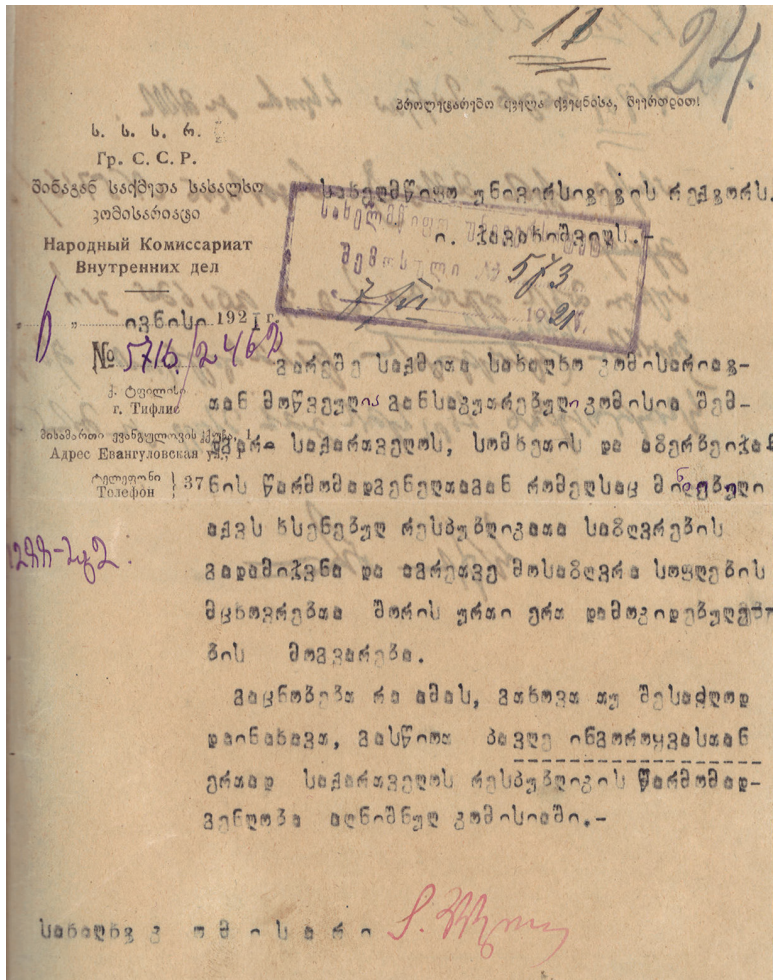 11
24.
პროლეტარებო ყველა ქვეყნისა, შეერთდით!
ს. ს. ს. რ.
Гр. С. С. Р.
შინაგან საქმეთა სახალხო
კომისარიატი
Народный Комиссариат
Внутренних дел
„ 6 „ ივნისი 1921 г.
№ 5716/2462
ქ. ტფილისი
г. Тифлис
მისამართი ევანგულოვის ქუჩა, 1
Адрес Евангуловская ул., 1
ტელეფონი
Телефон } 37
სახელმწიფო უნივერსიტეტის რექტორს.
ი. ჯავახიშვილს.-
სახელმწიფო უნივერსიტეტი
შემოსული № 573
7/VI 1921
გარეშე საქმეთა სახალხო კომისარიატ-
თან მოწვეულია განსაკუთრებული კომისია შემ-
დგარი საქართველოს, სომხეთის და აზერბეიჯა-
ნის წარმომადგენელთაგან რომელსაც მინდობილი
აქვს ხსენებულ რესპუბლიკათა საზღვრების
გადამიჯვნა და აგრეთვე მოსაზღვრე სოფლების
მცხოვრებთა შორის ურთი ერთ დამოკიდებულე-
ბის მოგვარება.
გაცნობებთ რა ამას, გთხოვთ თუ შესაძლოდ
დაინახავთ, გასწიოთ პავლე ინგოროყვასთან
ერთად საქართველოს რესპუბლიკის წარმომად-
გენლობა აღნიშნულ კომისიაში.-
სახალხო კომისარი